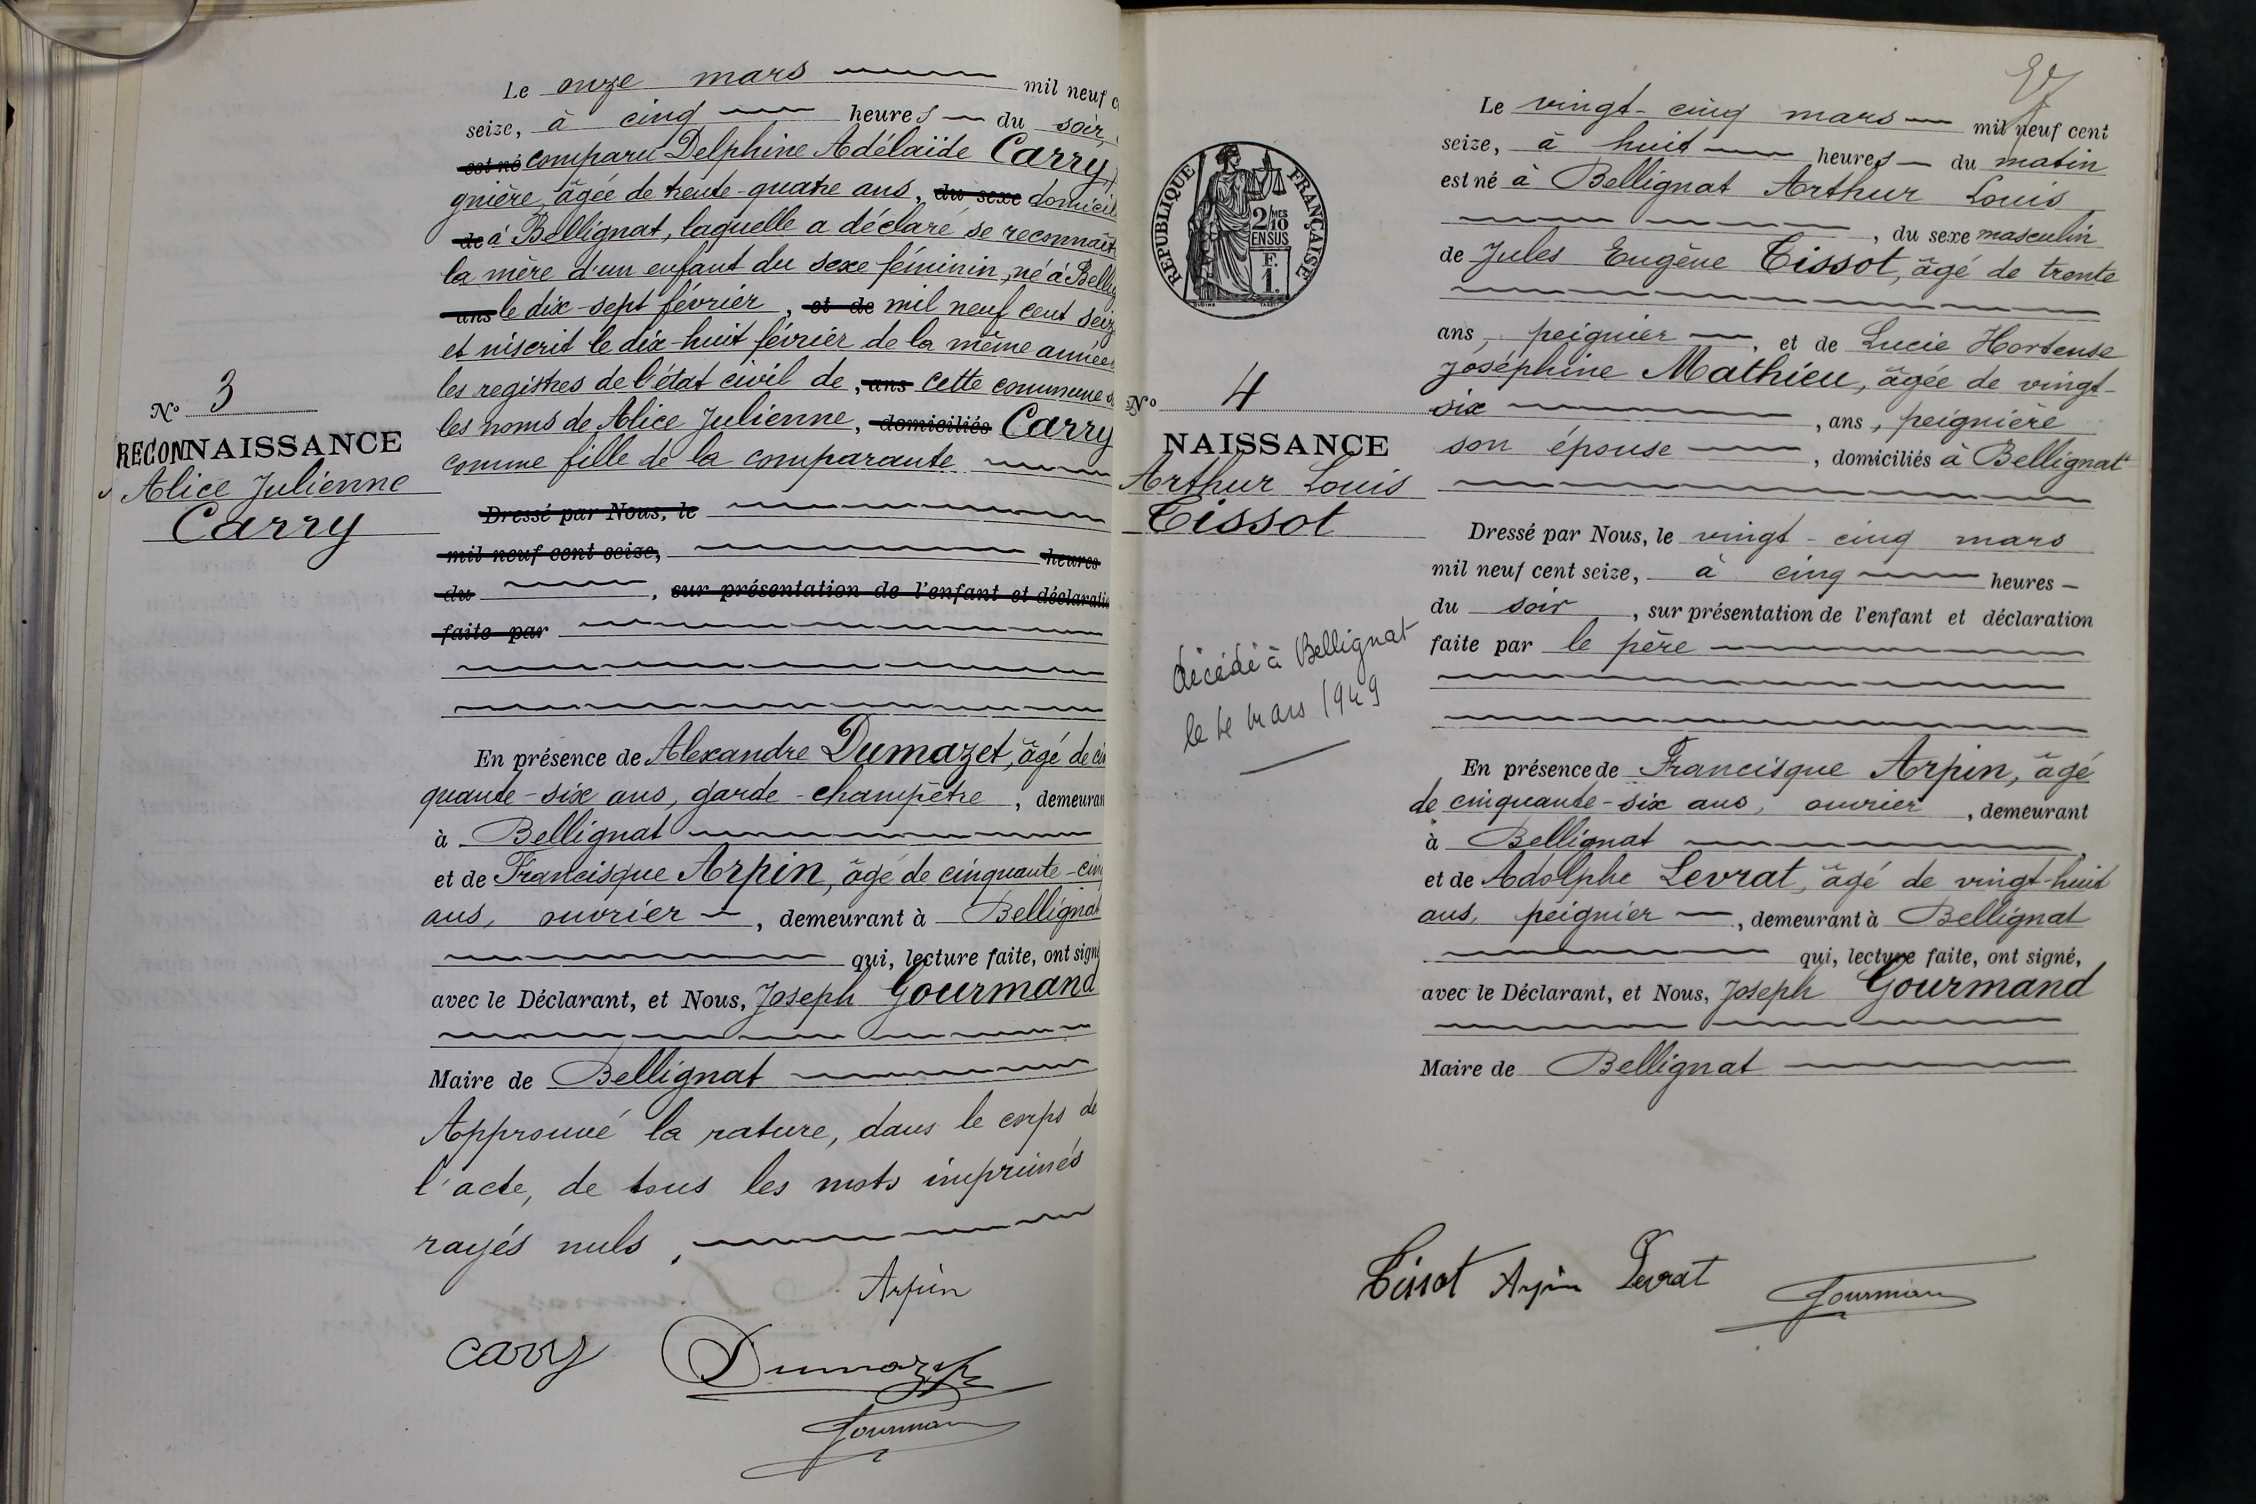 Le onze mars mil neuf c
seize, à cinq heures du soir,
est né comparu Delphine Adélaïde Carry,
gnière, âgée de trente-quatre ans, du sexe domicil
de à Bellignat, laquelle a déclaré se reconnaît
la mère d'un enfant du sexe féminin, né à Bellig
ans le dix-sept février, et de mil neuf cent seiz
et inscrit le dix-huit février de la même année
les registres de l'état civil de, ans cette commune
les noms de Alice Julienne, domiciliés Carry
comme fille de la comparante
Dressé par Nous, le
mil neuf cent seize, heures
du , sur présentation de l'enfant et déclaratio
faite par
En présence de Alexandre Dumazet, âgé de cin
quante-six ans, garde-champêtre, demeuran
à Bellignat
et de Francisque Arpin, âgé de cinquante-cin
ans, ouvrier, demeurant à Bellignat
qui, lecture faite, ont signé
avec le Déclarant, et Nous, Joseph Gourmand
Maire de Bellignat
Approuvé la rature, dans le corps de
l'acte, de tous les mots imprimés
rayés nuls.
Arpin
Carry Dumazet
Gourmand
No 3
RECONNAISSANCE
Alice Julienne
Carry
RÉPUBLIQUE FRANÇAISE
2/10 MES
EN SUS
F.
1.
No 4
NAISSANCE
Arthur Louis
Tissot
décédé à Bellignat
le 4 mars 1949
Le vingt-cinq mars mil neuf cent
seize, à huit heures du matin
est né à Bellignat Arthur Louis
, du sexe masculin
de Jules Eugène Tissot, âgé de trente
ans, peignier, et de Lucie Hortense
Joséphine Mathieu, âgée de vingt-
six , ans, peignière
son épouse , domiciliés à Bellignat
Dressé par Nous, le vingt-cinq mars
mil neuf cent seize, à cinq heures
du soir, sur présentation de l'enfant et déclaration
faite par le père
En présence de Francisque Arpin, âgé
de cinquante-six ans, ouvrier, demeurant
à Bellignat
et de Adolphe Levrat, âgé de vingt-huit
ans, peignier, demeurant à Bellignat
qui, lecture faite, ont signé,
avec le Déclarant, et Nous, Joseph Gourmand
Maire de Bellignat
Tissot Arpin Levrat Gourmand